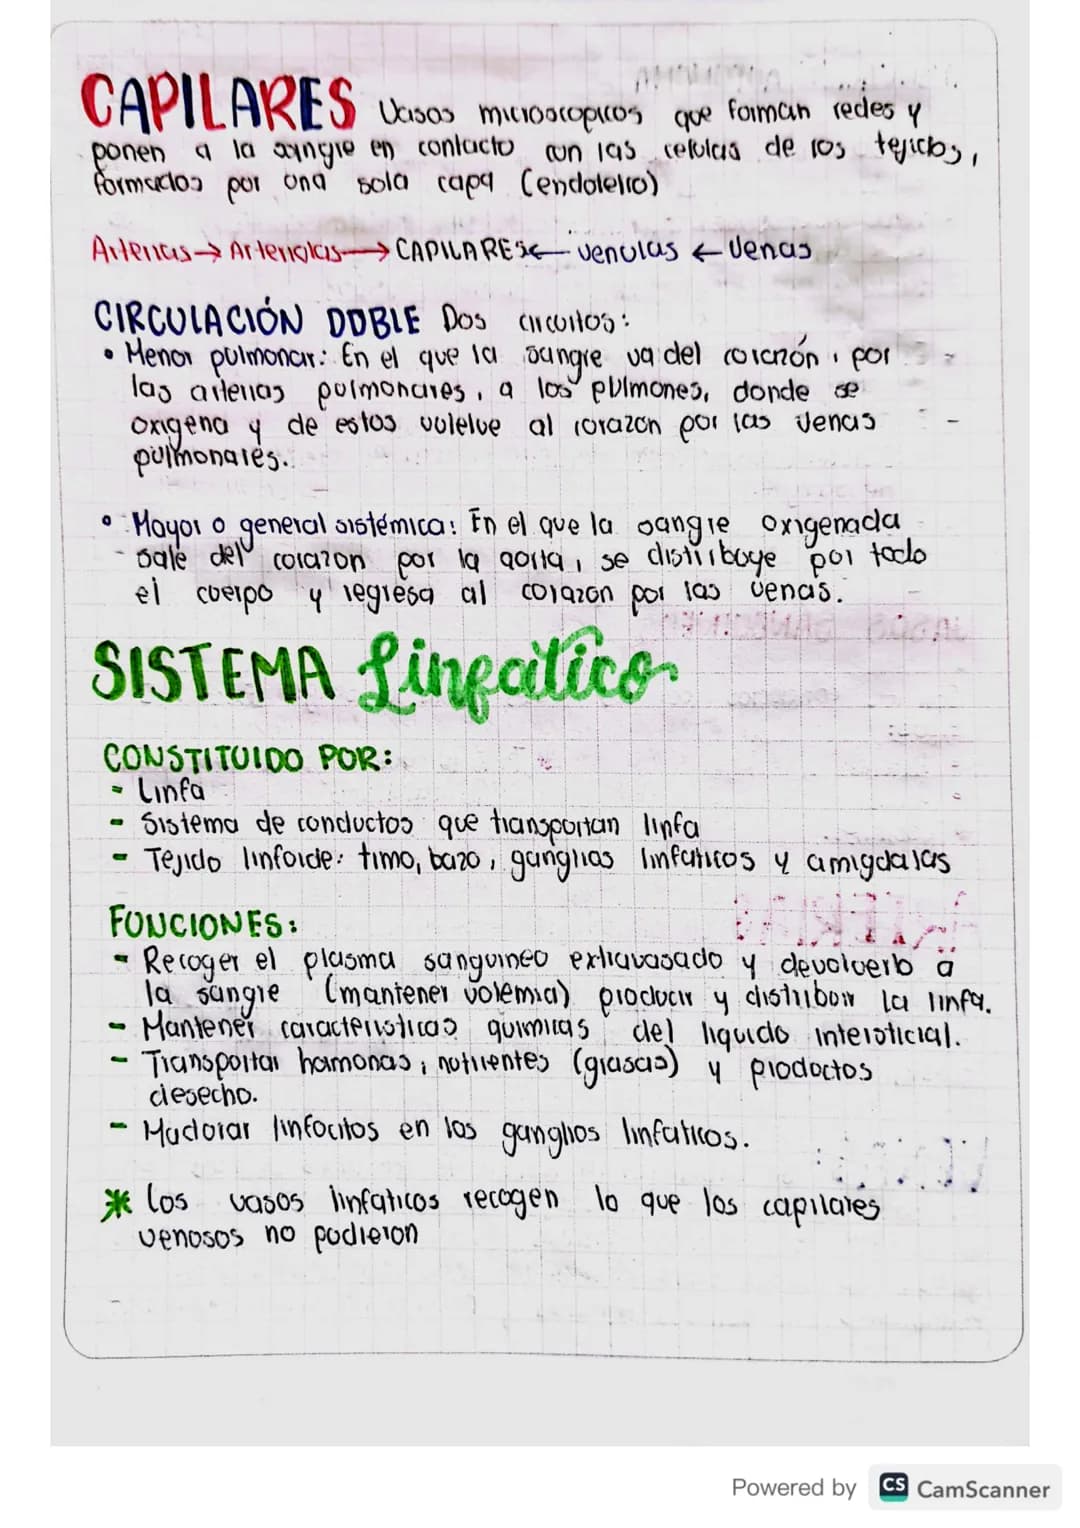 CAPILARES Vasos microscopicos que forman redes y
ponen a la sangre en contacto con las celulas de los tejidos,
formados por una sola capa (endotelio)
Arterias → Arteriolas → CAPILARES ← venulas ← Venas
CIRCULACIÓN DOBLE Dos circuitos:
• Menor pulmonar: En el que la sangre va del corazón, por
las arterias pulmonares, a los pulmones, donde se
oxigena y de estos vulelve al corazon por las venas
pulmonares.
• Mayor o general sistémica: En el que la sangre oxigenada
sale del corazon por la aorta, se distribuye por todo
el cuerpo y regresa al corazon por las venas.
SISTEMA Linfático
CONSTITUIDO POR:
- Linfa
- Sistema de conductos que transportan linfa
- Tejido linfoide: timo, bazo, ganglios linfaticos y amigdalas
FUNCIONES:
- Recoger el plasma sanguineo extravasado y devolverlo a
la sangre (mantener volemia) producir y distribuir la linfa.
- Mantener caracteristicas quimicas del liquido intersticial.
- Transportar hormonas, nutrientes (grasas) y productos
desecho.
- Madurar linfocitos en los ganglios linfaticos.
* Los vasos linfaticos recogen lo que los capilares
venosos no pudieron
Powered by CS CamScanner